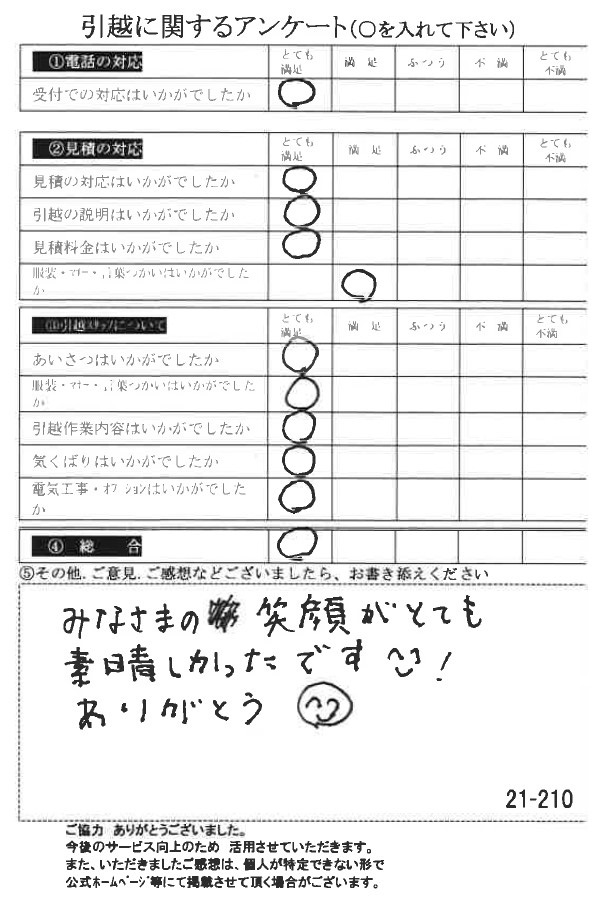 引越に関するアンケート(○を入れて下さい)
①電話の対応 とても満足 満足 ふつう 不満 とても不満
受付での対応はいかがでしたか
②見積の対応 とても満足 満足 ふつう 不満 とても不満
見積の対応はいかがでしたか
引越の説明はいかがでしたか
見積料金はいかがでしたか
服装・マナー・言葉づかいはいかがでした
か
③引越スタッフについて とても満足 満足 ふつう 不満 とても不満
あいさつはいかがでしたか
服装・マナー・言葉づかいはいかがでした
か
引越作業内容はいかがでしたか
気くばりはいかがでしたか
電気工事・オプションはいかがでした
か
④ 総 合
⑤その他.ご意見.ご感想などございましたら、お書き添えください
みなさまの 笑顔がとても
素晴しかったです!
ありがとう
21-210
ご協力 ありがとうございました。
今後のサービス向上のため 活用させていただきます。
また、いただきましたご感想は、個人が特定できない形で
公式ホームページ等にて掲載させて頂く場合がございます。